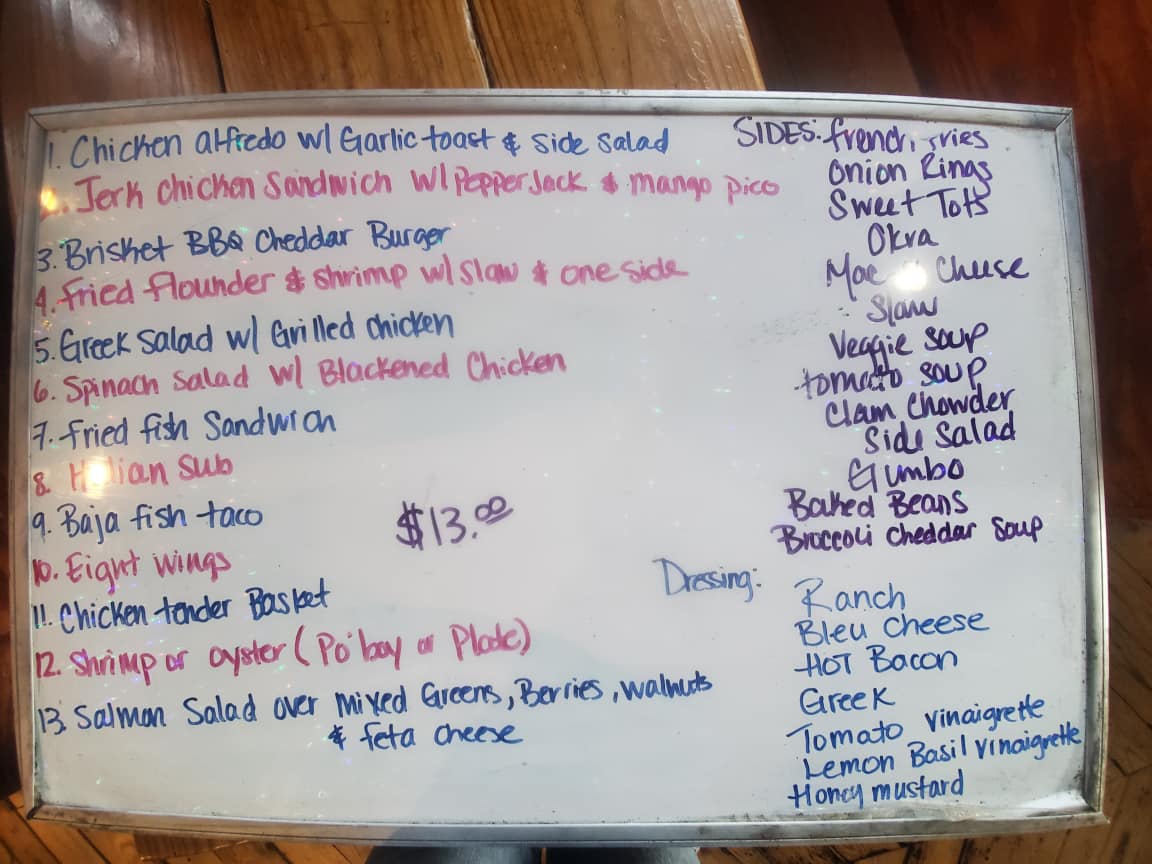 1. Chicken alfredo w/ Garlic toast & Side Salad
Jerk Chicken Sandwich w/ PepperJack & mango pico
3. Brisket BBQ Cheddar Burger
4. Fried Flounder & Shrimp w/ slaw & one side
5. Greek Salad w/ Grilled chicken
6. Spinach Salad w/ Blackened Chicken
7. Fried fish Sandwich
8. Italian Sub
9. Baja fish taco
$13.00
10. Eight Wings
11. Chicken tender Basket
12. Shrimp or oyster (Po'boy or Plate)
13. Salmon Salad over Mixed Greens, Berries, walnuts
& feta cheese
SIDES: french fries
Onion Rings
Sweet Tots
Okra
Mac Cheese
Slaw
Veggie Soup
tomato soup
Clam Chowder
Side Salad
Gumbo
Baked Beans
Broccoli Cheddar Soup
Dressing: Ranch
Bleu Cheese
HOT Bacon
Greek
Tomato Vinaigrette
Lemon Basil Vinaigrette
Honey mustard